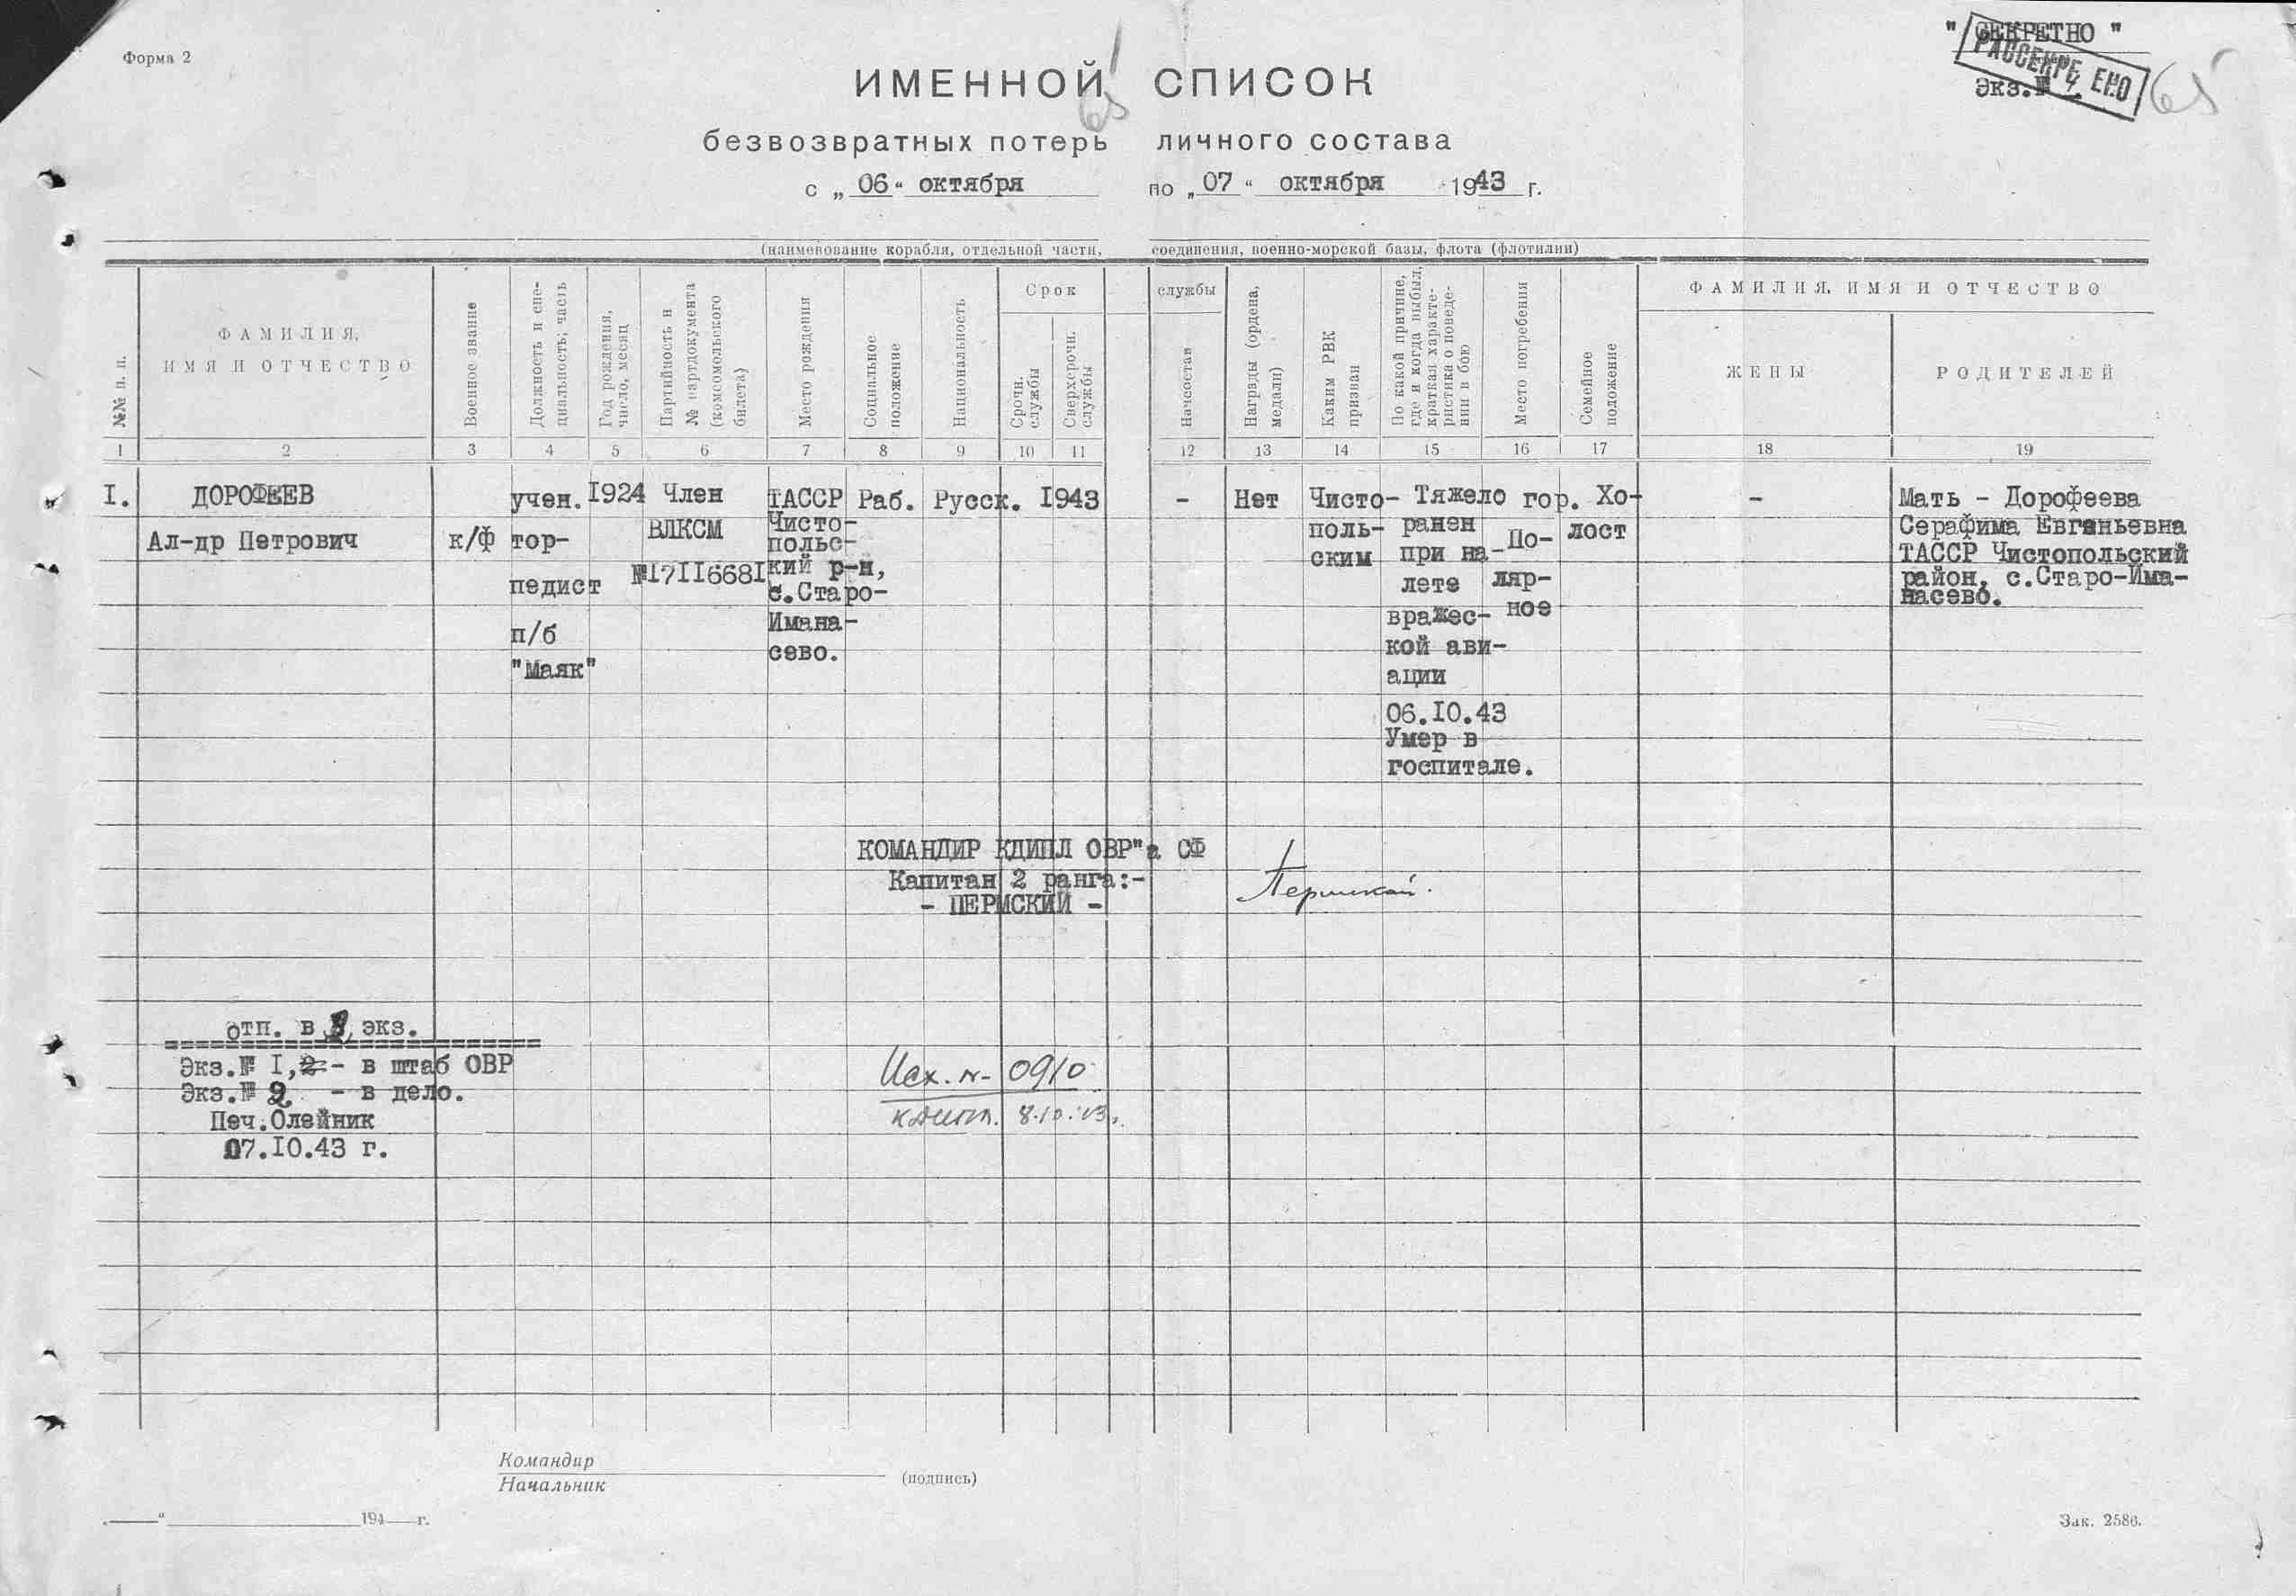 Форма 2
" СЕКРЕТНО "
РАССЕКРЕ ЕНО
Экз.№
65
ИМЕННОЙ СПИСОК
65
безвозвратных потерь личного состава
с „ 06 “ октября по „ 07 “ октября 1943 г.
(наименование корабля, отдельной части, соединения, военно-морской базы, флота (флотилии)
№№ п. п.
ФАМИЛИЯ,
ИМЯ И ОТЧЕСТВО
Военное звание
Должность и спе-
циальность; часть
Год рождения,
число, месяц
Партийность и
№ партдокумента
(комсомольского
билета)
Место рождения
Социальное
положение
Национальность
Срок службы
Срочн.
службы
Сверхсрочн.
службы
Начсостав
Награды (ордена,
медали)
Каким РВК
призван
По какой причине,
где и когда выбыл,
краткая характе-
ристика о поведе-
нии в бою
Место погребения
Семейное
положение
ФАМИЛИЯ, ИМЯ И ОТЧЕСТВО
ЖЕНЫ
РОДИТЕЛЕЙ
1 2 3 4 5 6 7 8 9 10 11 12 13 14 15 16 17 18 19
I.
ДОРОФЕЕВ
Ал-др Петрович
к/ф
учен.
тор-
педист
п/б
"Маяк"
1924
Член
ВЛКСМ
№17116681
ТАССР
Чисто-
польс-
кий р-н,
с.Старо-
Имана-
сево.
Раб.
Русск.
1943
-
Нет
Чисто-
поль-
ским
Тяжело
ранен
при на-
лете
вражес-
кой ави-
ации
06.10.43
Умер в
госпитале.
гор.
По-
ляр-
ное
Хо-
лост
-
Мать - Дорофеева
Серафима Евгеньевна
ТАССР Чистопольский
район, с.Старо-Има-
насево.
КОМАНДИР КДИПЛ ОВР"а СФ
Капитан 2 ранга:-
- ПЕРМСКИЙ -
Пермский.
отп. в экз.
Экз.№ I,2 - в штаб ОВР
Экз.№ 2 - в дело.
Печ.Олейник
07.10.43 г.
Исх. № 0910
8.10.43г.
Командир
Начальник
(подпись)
„ “ 194 г.
Зак. 2586.